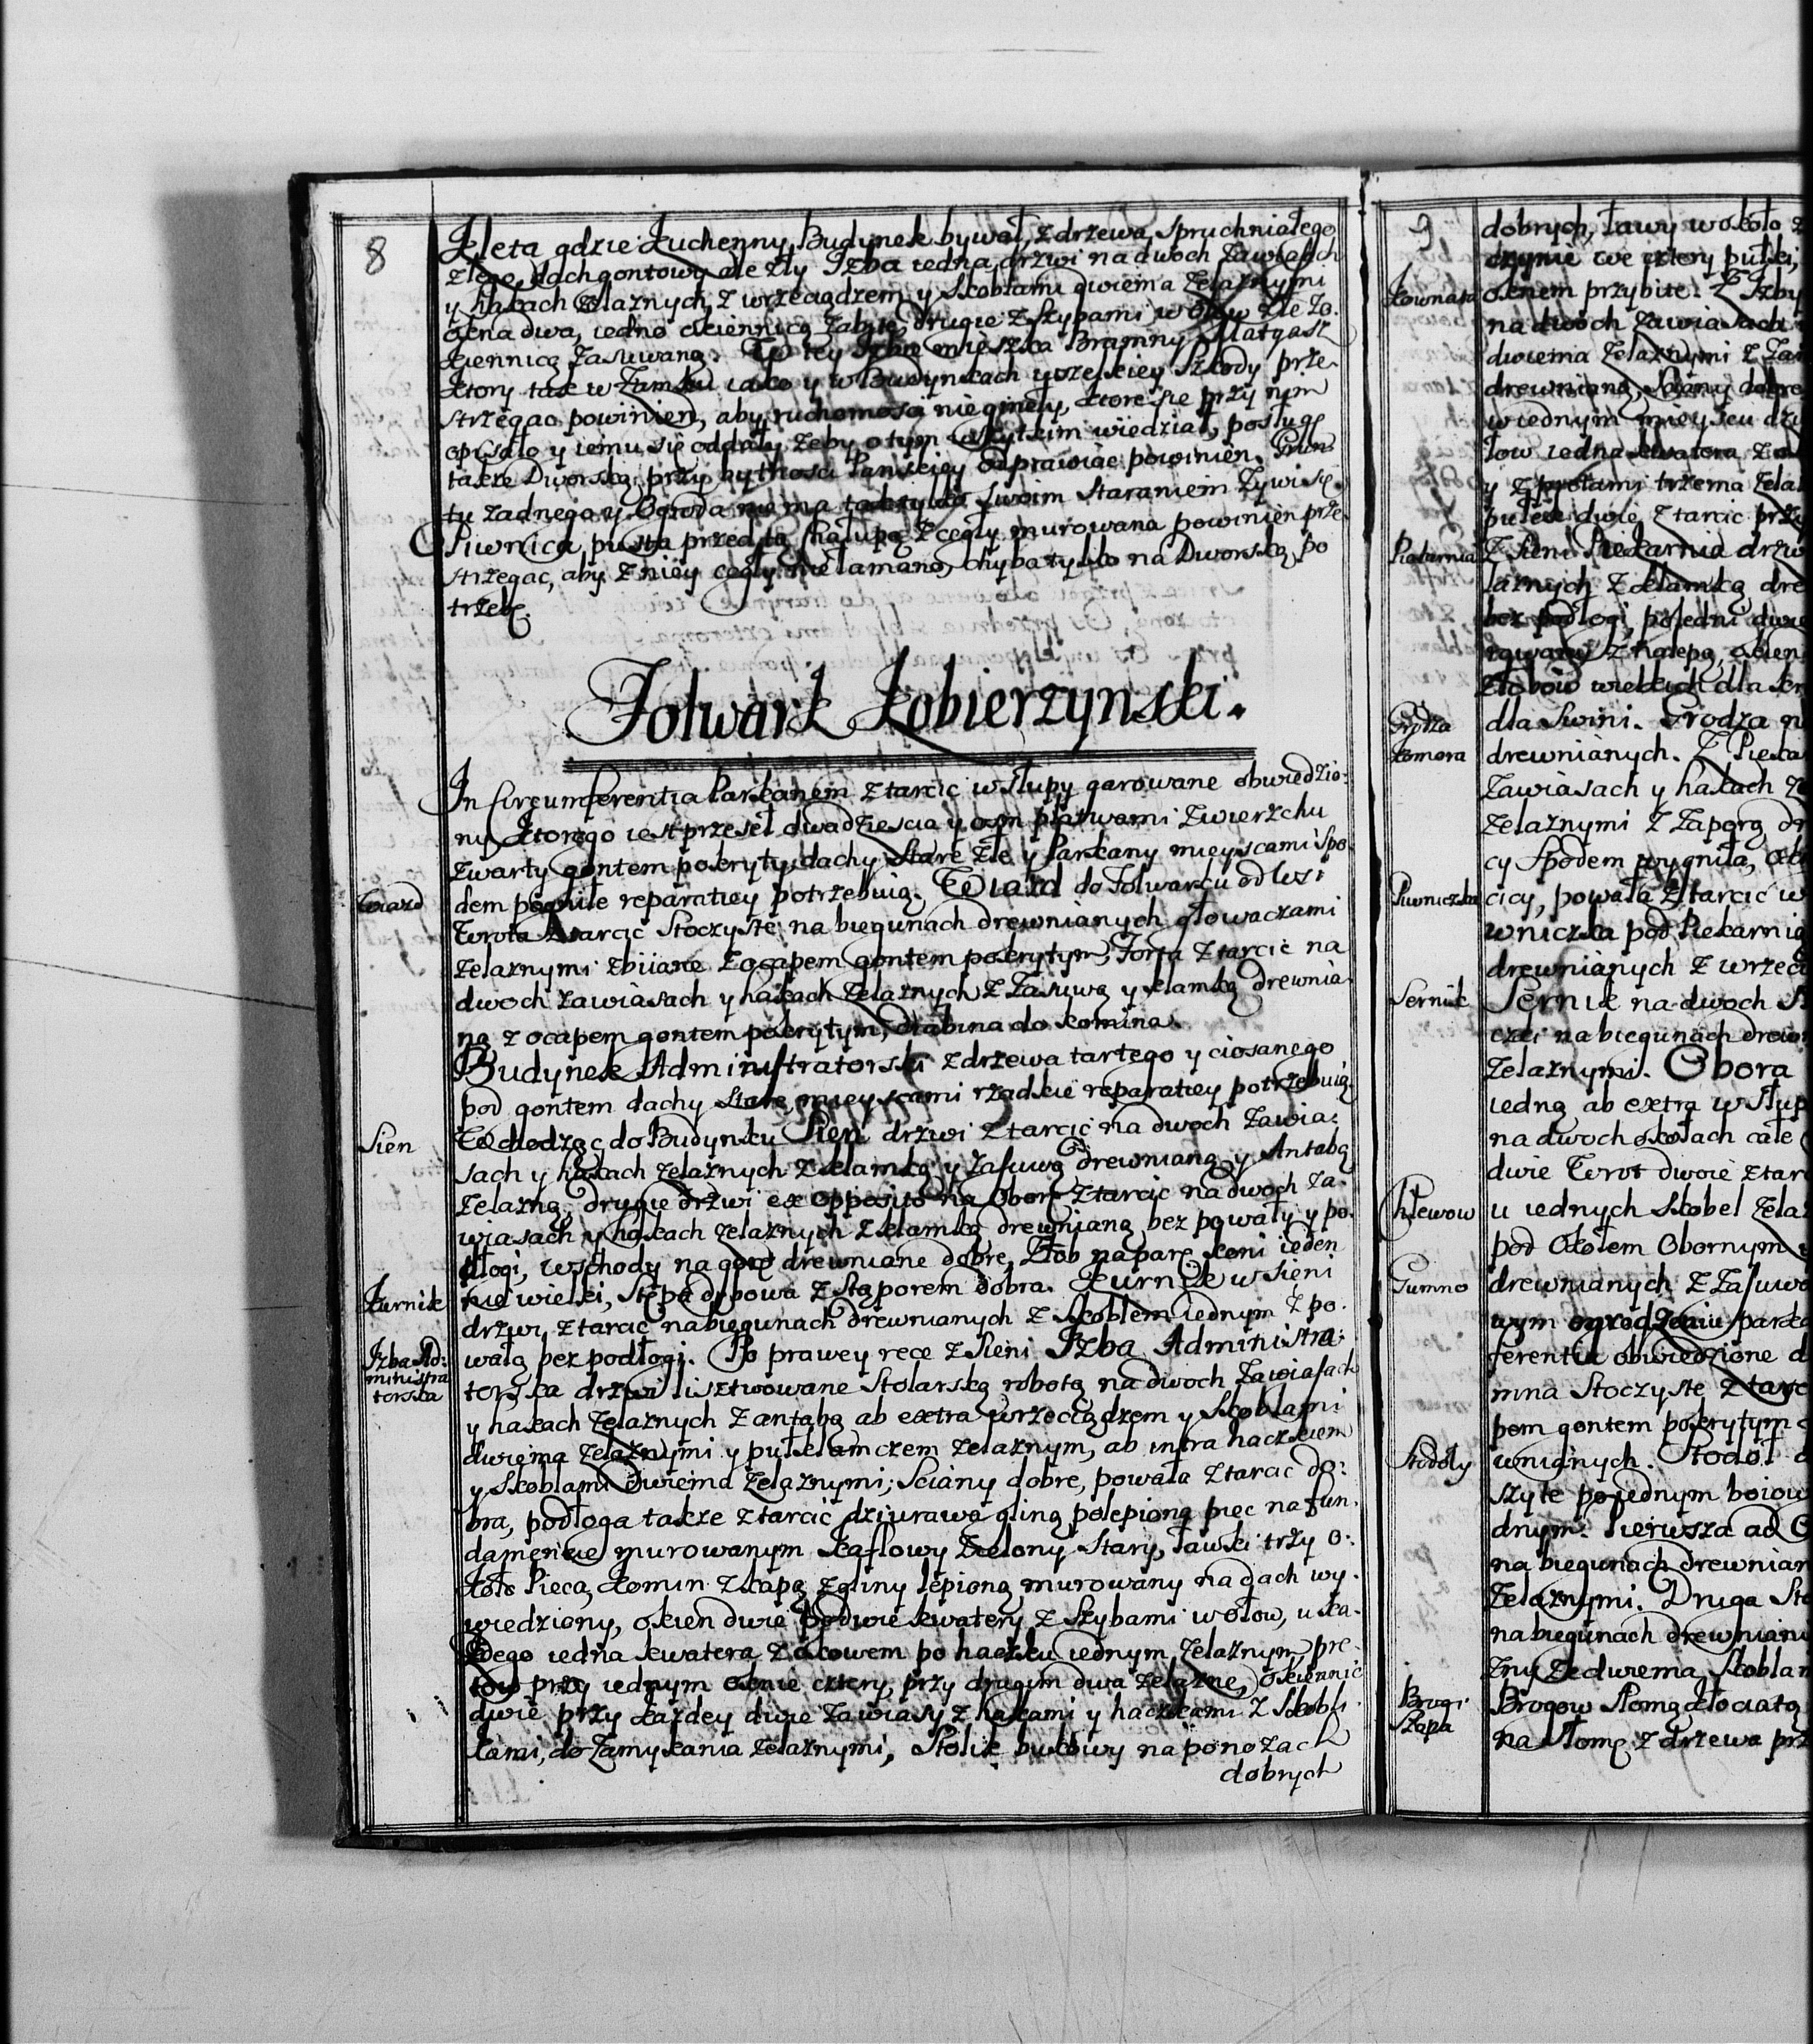 8
Kleta gdzie Kuchenny Budynek bywał, z drzewa Spruchniałego
złego, dach gontowy ale zły Izba iedna, drzwi na dwoch Zawiasach
y hakach żelaznych, z wrzeciądzem y Skoblami dwiema Żelaznymi
okna dwa, iedno okiennicą Zabite, drugie z Szybami w ołow złe Zo
kiennicą Zasuwaną. W tey Izbie mieszka Bramny Matyasz
ktory tak w Zamku iako y w Budynkach wszelkiey Szkody prze-
strzegac powinien, aby ruchomosci nie gineły, ktore się przy nym
opisało y iemu się oddały, żeby o tym wszytkim wiedział, posługę
takze Dworską przy bytnosci Panskiey odprawiac powinien. Grun
tu żadnego y Ogroda nie ma tak tylko swoim Staraniem Żywi się.
Piwnica pusta przed tą Chałupą z cegły murowana powinien prze
strzegac, aby z niey cegły nie łamano, chyba tylko na Dworską po
trzebę.
Folwark Kobierzynski.
In Circumferentia Parkanem z tarcic w słupy garowane obwiedzio:
ny ktorego iest przeseł dwadziescia y osm płazwami Zwierzchu
Zwarty gontem pokryty, dachy Stare złe y Parkany mieyscami Spo
dem pogniłe reparatiey potrzebuią. Wiazd do Folwarku od Wsi
Wiazd
Wrota z tarcic Stoczyste na biegunach drewnianych głowaczami
żelaznymi zbiiane z ocapem gontem pokrytym, Forta z tarcic na
dwoch zawiasach y hakach Żelaznych z Zasuwą y klamką drewnia
ną z ocapem gontem pokrytym, drabina do komina.
Budynek Administratorski z drzewa tartego y ciosanego
pod gontem dachy Stare, mieyscami rzadkie reparatiey potrzebuią
Wchodząc do Budynku Sien drzwi z tarcic na dwoch Zawia:
Sien
sach y hakach żelaznych z klamką y Zasuwą drewnianą y Antabą
żelazną, drugie drzwi ex opposito na Oborę z tarcic na dwoch Za-
wiasach y hakach żelaznych z klamką drewnianą bez powały y po
dłogi, wschody na gorę drewniane dobre, Żłob na parę koni ieden
nie wielki, Stępa dębowa z Stąporem dobra. Kurnik w Sieni
Kurnik
drzwi z tarcic na biegunach drewnianych z Skoblem iednym z po
wałą bez podłogi. Po prawey ręce z Sieni Izba Administra:
Izba Ad:
ministra
torska
torska drzwi lisztwowane Stolarską robotą na dwoch Zawiasach
y hakach Żelaznych z antabą ab extra wrzeciądzem y Skoblami
dwiema Żelaznymi y pułklamczem żelaznym, ab intra haczkiem
y Skoblami dwiema Żelaznymi; Sciany dobre, powała z tarcic do:
bra, podłoga takze z tarcic dziurawa gliną polepiona piec na fun
damencie murowanym kaflowy Zielony Stary, Ławki trzy o:
koło Pieca, komin z kapą z gliny lepioną murowany na dach wy
wiedziony, okien dwie po dwie kwatery z Szybami w ołow, u ka
żdego iedna kwatera z ołowem po haczku iednym żelaznym, prę
tow przy iednym oknie cztery, przy drugim dwa żelazne, okiennic
dwie przy każdey dwie Zawiasy z hakami y haczkami z Skobli
kami, do Zamykania żelaznymi, Stolik bukowy na ponożach
dobrych
9
dobrych, ławy wokoło
czynie we cztery pułki,
oknem przybite. Z Izby
na dwoch Zawiasach
dwiema Żelaznymi z
drewnianą, Sciany dobre
w iednym mieyscu
łow iedna kwatera
y z prętami trzema
pułek dwie z tarcic
Z Sieni Piekarnia
Piekarnia
łaznych z klamką
bez podłogi, poledni
z kalepą,
Żłobow wielkich dla
dla Swini. Grodza
Grodza
Komora
drewnianych. Z
Zawiasach y hakach
żelaznymi z Zaporą
cy Spodem przygniła,
Piwniczka
cicy, powała z tarcic w
wniczka pod Piekarnią
drewnianych z
Sernik
Sernik na dwoch
czki na biegunach
Żelaznymi. Obora
iedna ab extra w
na dwoch okołach całe
dwie Wrot dwoie z
Chlewow
u iednych Skobel
pod Okołem Obornym
Gumno
drewnianych z
wym ogrodzeniu
ferentia obwiedzione
mna Stoczyste z
pem gontem pokrytym
Stodoły
wnianych. Stodoł
szyte po iednym
dnym. Pierwsza ad
na biegunach
Żelaznymi. Druga
na biegunach
zny ze dwiema
Brogi
Szopa
Brogow Słomą
na Słomę z drzewa